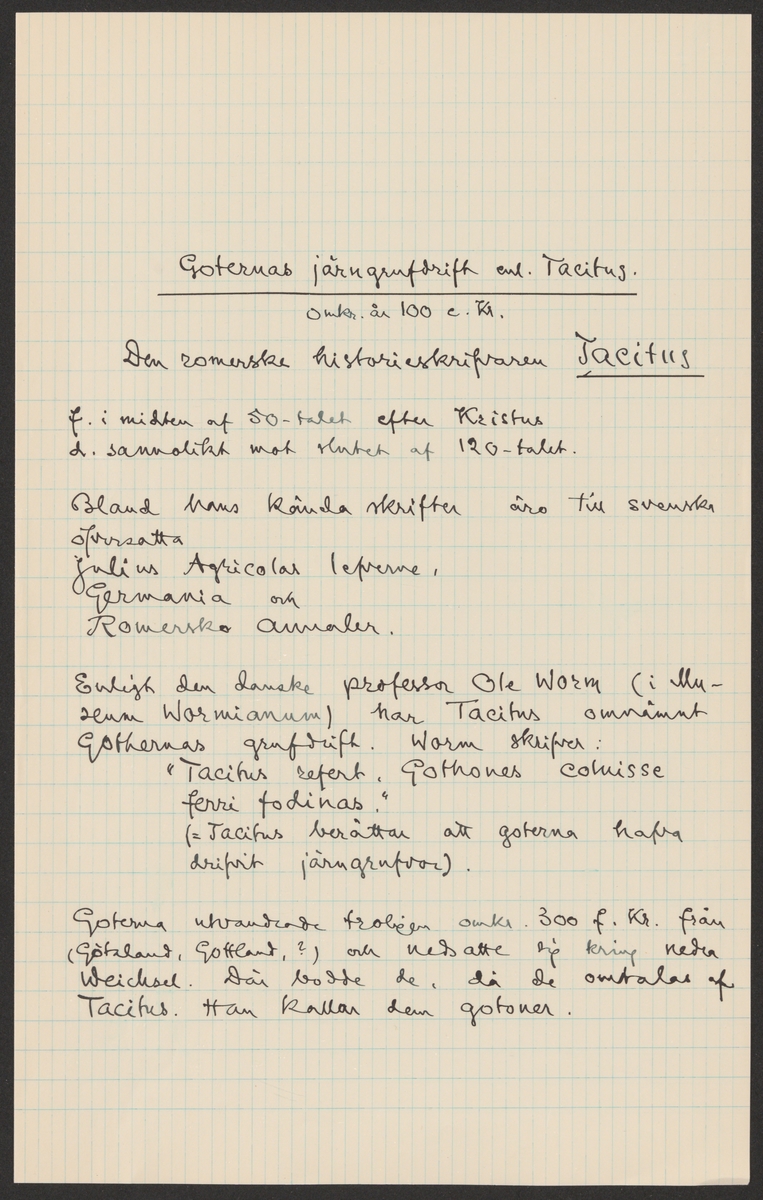 Goternas järngrufdrift enl. Tacitus.
omkr. år 100 e. Kr.
Den romerske historieskrifvaren Tacitus
f. i midten af 50-talet efter Kristus
d. sannolikt mot slutet af 120-talet.
Bland hans kända skrifter äro till svenska
öfversatta
Julius Agricolas lefverne,
Germania och
Romerska Annaler.
Enligt den danske professor Ole Worm (i Mu-
seum Wormianum) har Tacitus omnämnt
Gothernas grufdrift. Worm skrifver:
"Tacitus refert, Gothones coluisse
ferri fodinas."
(= Tacitus berättar att goterna hafva
drifvit järngrufvor).
Goterna utvandrade troligen omkr. 300 f. Kr. från
(Götaland, Gottland, ?) och nedsatte sig kring nedra
Weichsel. Där bodde de, då de omtalas af
Tacitus. Han kallar dem gotoner.